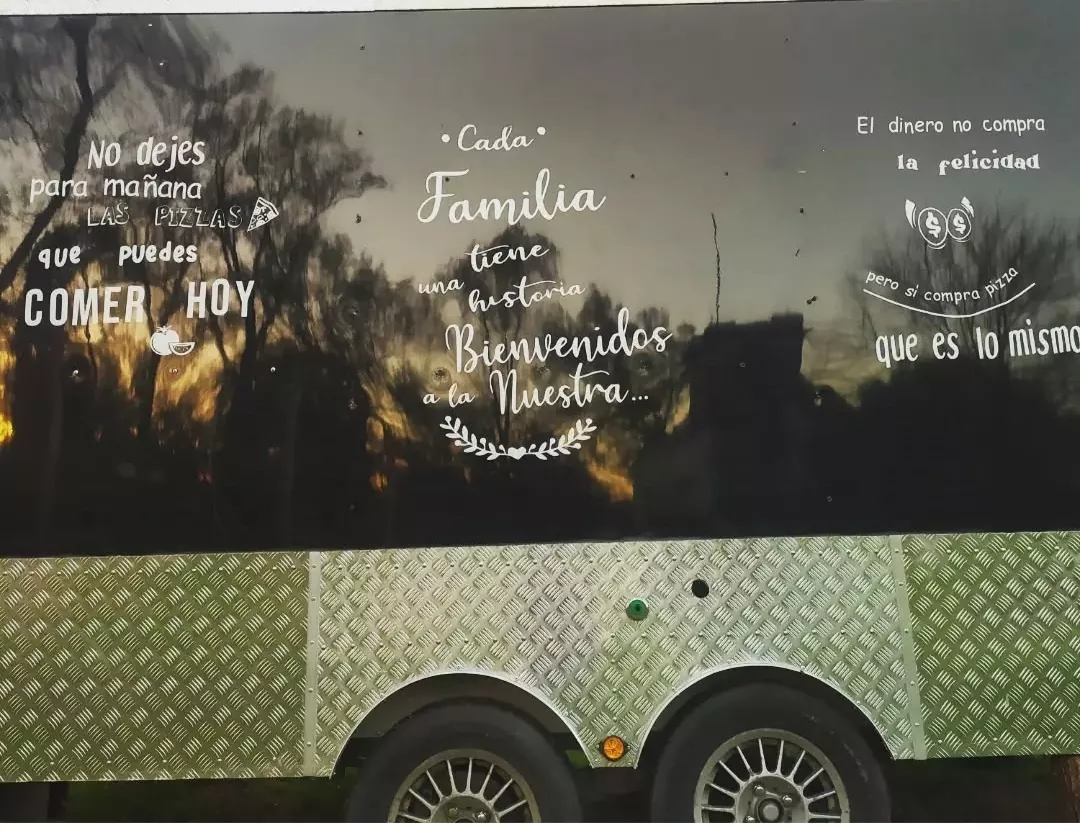 No dejes
para mañana
LAS PIZZAS
que puedes
COMER HOY
Cada
Familia
tiene
una historia
Bienvenidos
a la Nuestra...
El dinero no compra
la felicidad
$ $
pero si compra pizza
que es lo mismo